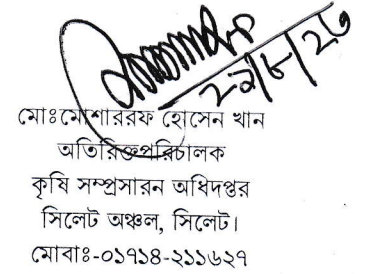 ২৯/৮/২৩
মোঃমোশাররফ হোসেন খান
অতিরিক্তপরিচালক
কৃষি সম্প্রসারন অধিদপ্তর
সিলেট অঞ্চল, সিলেট।
মোবাঃ-০১৭১৪-২১১৬২৭